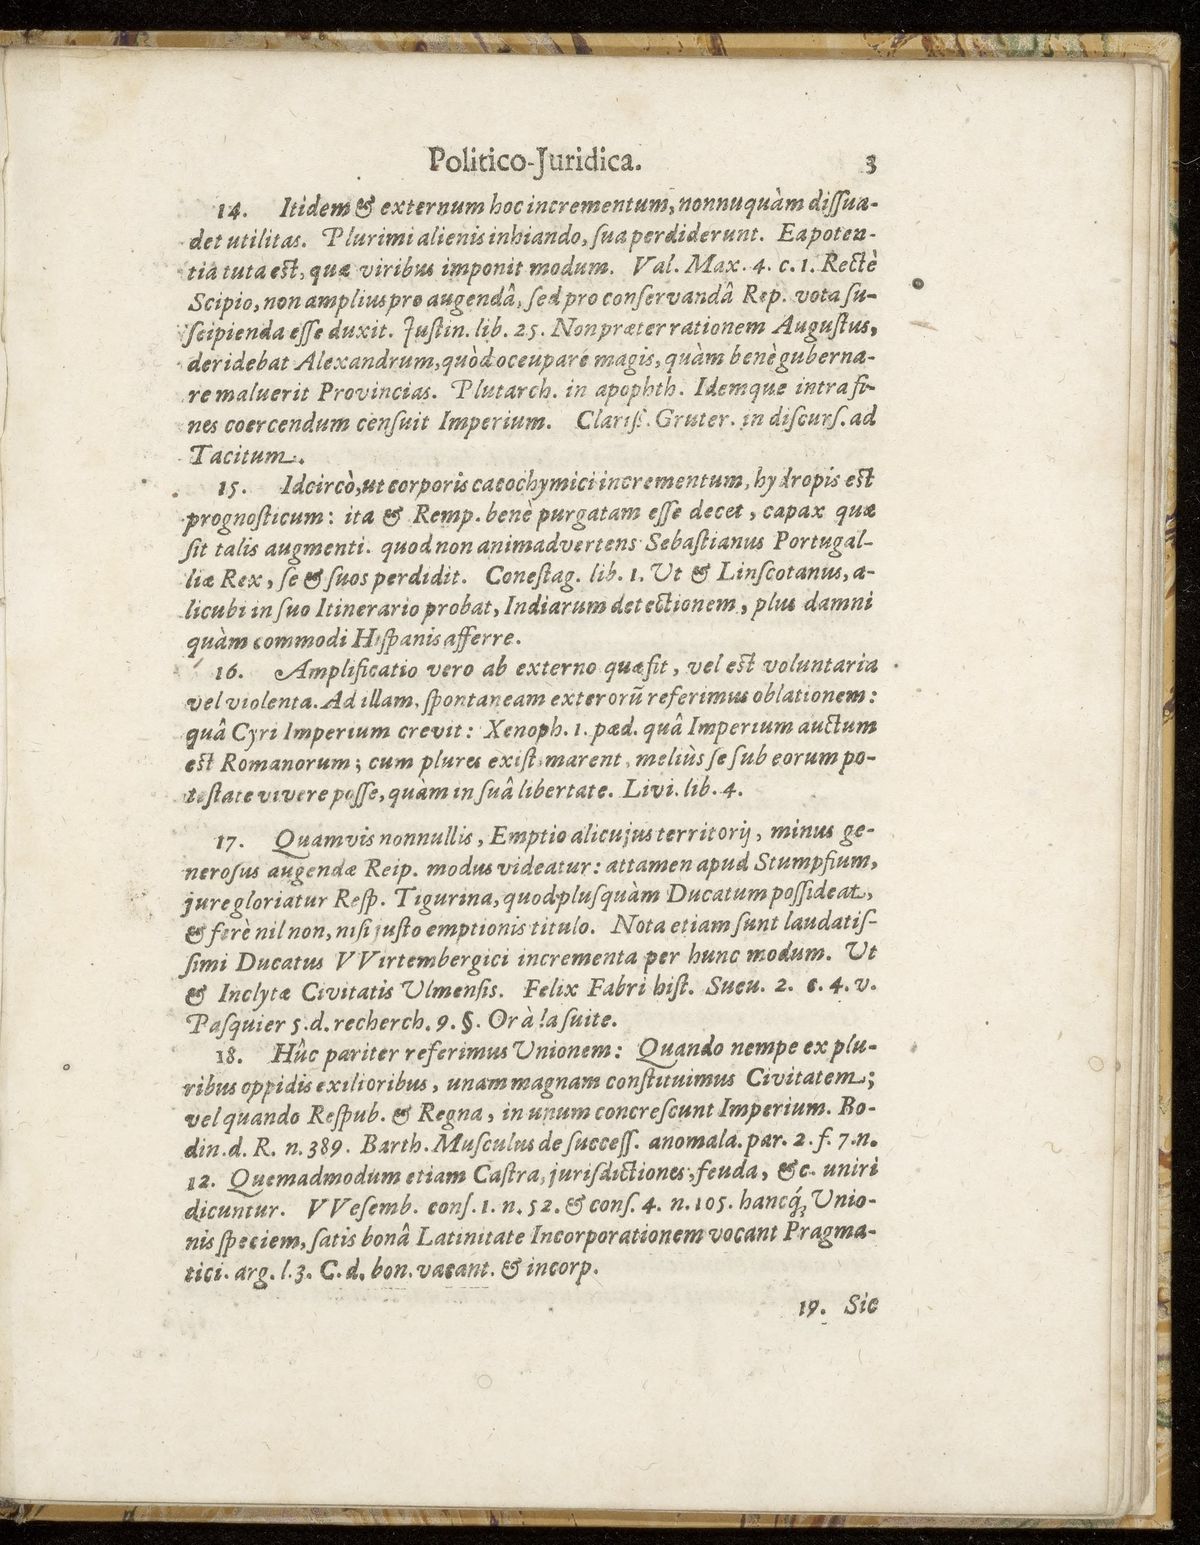 Politico-Juridica. 3
14. Itidem & externum hoc incrementum, nonnuquàm dissua-
det utilitas. Plurimi alienis inhiando, sua perdiderunt. Ea poten-
tia tuta est, quæ viribus imponit modum. Val. Max. 4. c. 1. Rectè
Scipio, non amplius pro augendâ, sed pro conservandâ Rep. vota su-
scipienda esse duxit. Justin. lib. 25. Non præter rationem Augustus,
deridebat Alexandrum, quòd occupare magis, quàm benè guberna-
re maluerit Provincias. Plutarch. in apophth. Idemque intra fi-
nes coercendum censuit Imperium. Clariss. Gruter. in discurs. ad
Tacitum.
15. Idcircò, ut corporis cacochymici incrementum, hydropis est
prognosticum: ita & Remp. benè purgatam esse decet, capax quæ
sit talis augmenti. quod non animadvertens Sebastianus Portugal-
liæ Rex, se & suos perdidit. Conestag. lib. 1. Ut & Linscotanus, a-
licubi in suo Itinerario probat, Indiarum detectionem, plus damni
quàm commodi Hispanis afferre.
16. Amplificatio vero ab externo quæ fit, vel est voluntaria
vel violenta. Ad illam, spontaneam exterorũ referimus oblationem:
quâ Cyri Imperium crevit: Xenoph. 1. pæd. quâ Imperium auctum
est Romanorum; cum plures existimarent, meliùs se sub eorum po-
testate vivere posse, quàm in suâ libertate. Livi. lib. 4.
17. Quamvis nonnullis, Emptio alicujus territorij, minus ge-
nerosus augendæ Reip. modus videatur: attamen apud Stumpfium,
jure gloriatur Resp. Tigurina, quod plusquàm Ducatum possideat,
& ferè nil non, nisi justo emptionis titulo. Nota etiam sunt laudatis-
simi Ducatus VVirtembergici incrementa per hunc modum. Ut
& Inclytæ Civitatis Ulmensis. Felix Fabri hist. Sueu. 2. c. 4. v.
Pasquier 5. d. recherch. 9. §. Or à la suite.
18. Hûc pariter referimus Unionem: Quando nempe ex plu-
ribus oppidis exilioribus, unam magnam constituimus Civitatem;
vel quando Respub. & Regna, in unum concrescunt Imperium. Bo-
din. d. R. n. 389. Barth. Musculus de success. anomala. par. 2. f. 7. n.
12. Quemadmodum etiam Castra, jurisdictiones, feuda, &c. uniri
dicuntur. VVesemb. cons. 1. n. 52. & cons. 4. n. 105. hancq́; Unio-
nis speciem, satis bonâ Latinitate Incorporationem vocant Pragma-
tici. arg. l. 3. C. d. bon. vacant. & incorp.
19. Sic